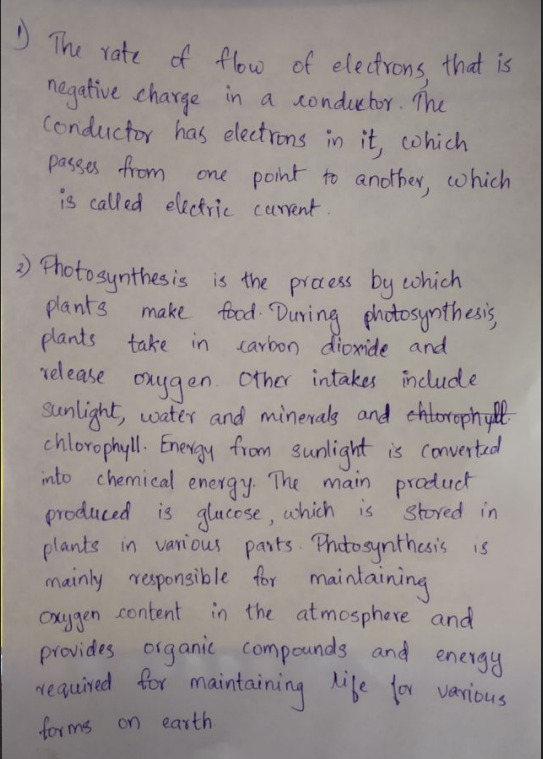 1) The rate of flow of electrons, that is
negative charge in a conductor. The
conductor has electrons in it, which
passes from one point to another, which
is called electric current.
2) Photosynthesis is the process by which
plants make food. During photosynthesis,
plants take in carbon dioxide and
release oxygen. Other intakes include
sunlight, water and minerals and chlorophyll.
chlorophyll. Energy from sunlight is converted
into chemical energy. The main product
produced is glucose, which is stored in
plants in various parts. Photosynthesis is
mainly responsible for maintaining
oxygen content in the atmosphere and
provides organic compounds and energy
required for maintaining life for various
forms on earth